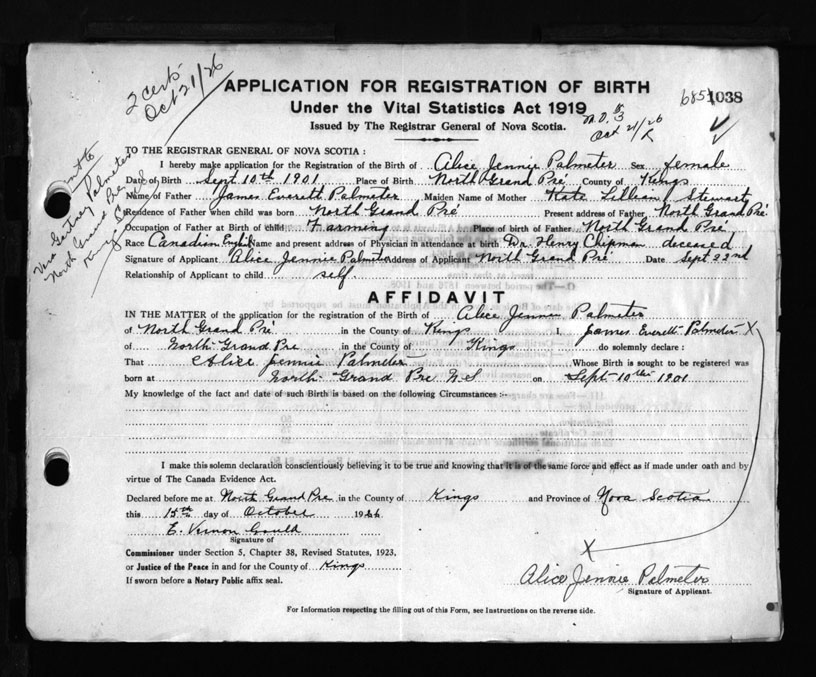 2 certs
Oct 21/26
APPLICATION FOR REGISTRATION OF BIRTH
6854 1038
Under the Vital Statistics Act 1919
Issued by The Registrar General of Nova Scotia.
Oct 21/26
TO THE REGISTRAR GENERAL OF NOVA SCOTIA :
I hereby make application for the Registration of the Birth of Alice Jennie Palmeter Sex female
Date of Birth Sept 10th 1901 Place of Birth North Grand Pré County of Kings
Name of Father James Everett Palmeter Maiden Name of Mother Kate Lillian Stewart
Residence of Father when child was born North Grand Pré Present address of Father North Grand Pré
Occupation of Father at Birth of child Farming Place of birth of Father North Grand Pré
Race Canadian English Name and present address of Physician in attendance at birth Dr. Henry Chipman deceased
Signature of Applicant Alice Jennie Palmeter Address of Applicant North Grand Pré Date Sept 22nd
Relationship of Applicant to child self.
Palmeter
North Grand Pre
AFFIDAVIT
IN THE MATTER of the application for the registration of the Birth of Alice Jennie Palmeter
of North Grand Pré in the County of Kings I, James Everett Palmeter X
of North Grand Pre in the County of Kings do solemnly declare :
That Alice Jennie Palmeter Whose Birth is sought to be registered was
born at North Grand Pre N S on Sept 10th 1901
My knowledge of the fact and date of such Birth is based on the following Circumstances :-
I make this solemn declaration conscientiously believing it to be true and knowing that it is of the same force and effect as if made under oath and by
virtue of The Canada Evidence Act.
Declared before me at North Grand Pre in the County of Kings and Province of Nova Scotia
this 15th day of October 1926
E. Vernon Gould
Signature of
Commissioner under Section 5, Chapter 38, Revised Statutes, 1923,
or Justice of the Peace in and for the County of Kings
If sworn before a Notary Public affix seal.
X
Alice Jennie Palmeter
Signature of Applicant.
For Information respecting the filling out of this Form, see Instructions on the reverse side.